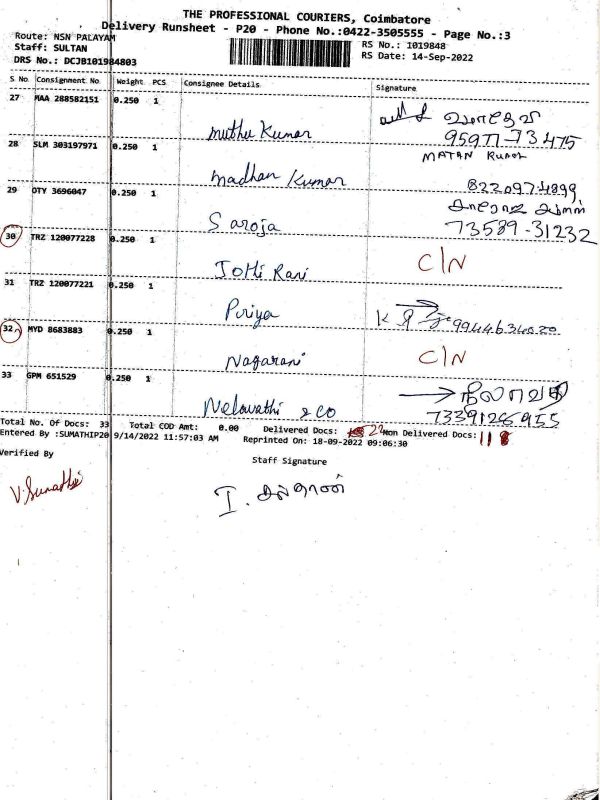 THE PROFESSIONAL COURIERS, Coimbatore
Delivery Runsheet - P20 - Phone No.:0422-3505555 - Page No.:3
Route: NSN PALAYAM
RS No.: 1019848
Staff: SULTAN
RS Date: 14-Sep-2022
DRS No.: DCJB101984803
S No Consignment No Weight PCS Consignee Details Signature
27 MAA 288582151 0.250 1 Muthu Kumar
95977-73475
28 SLM 303197971 0.250 1 Madhan Kumar MATAN Kumar
8220974899
29 OTY 3696047 0.250 1 Saroja
73539-31232
30 TRZ 120077228 0.250 1 Jothi Rani C/N
31 TRZ 120077221 0.250 1 Piriya 9944634020
32 MYD 8683883 0.250 1 Nagarani C/N
33 GPM 651529 0.250 1 Nelavathi & CO
7339126955
Total No. Of Docs: 33 Total COD Amt: 0.00 Delivered Docs: 22 Non Delivered Docs: 11
Entered By :SUMATHIP20 9/14/2022 11:57:03 AM Reprinted On: 18-09-2022 09:06:30
Verified By
Staff Signature
V. Sumathi
I. சுல்தான்